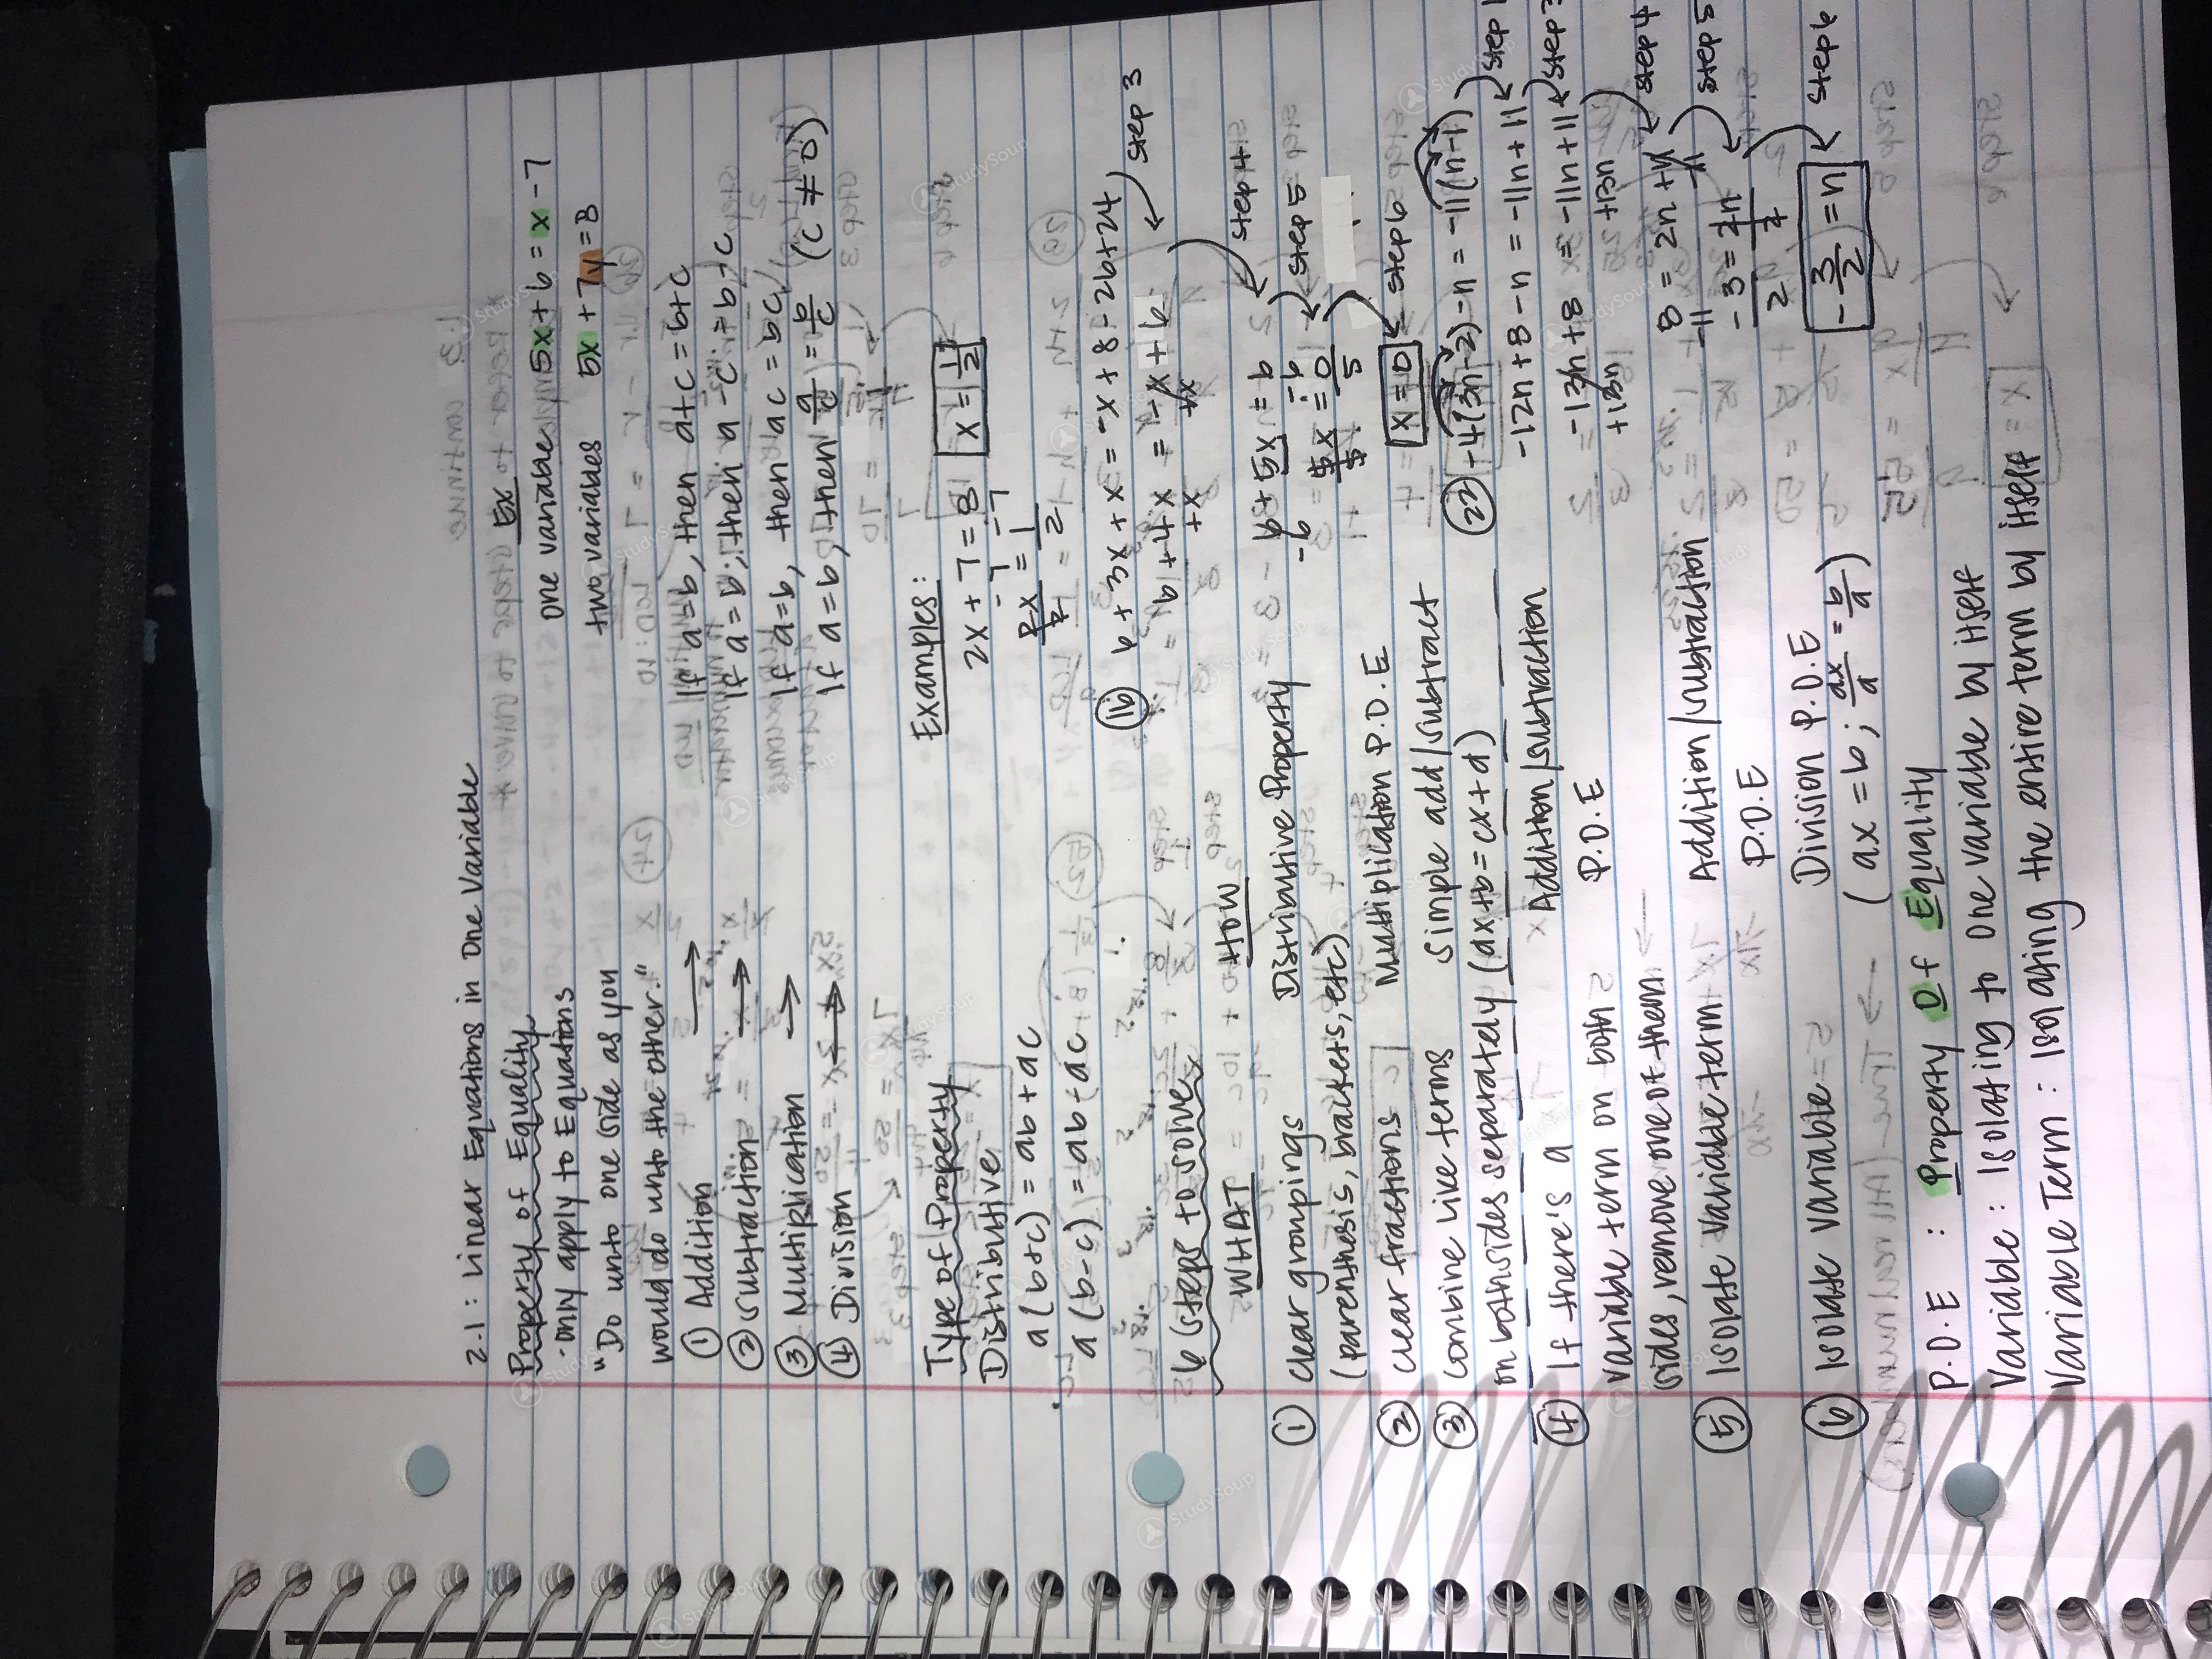 2.1: Linear Equations in One Variable
Property of Equality
· only apply to Equations
"Do unto one side as you
would do unto the other."
① Addition → If a=b, then a+c=b+c
② Subtraction → If a=b, then a-c=b-c
③ Multiplication → If a=b, then ac=bc
④ Division → If a=b, then a/c = b/c (c≠0)
Ex
one variable 5x+6=x-7
two variables 5x+7y=3
Type of Property
Distributive
a(b+c)=ab+ac
a(b-c)=ab-ac
Examples:
2x+7=8
-7 -7
2x/2 = 1/2
x=1/2
⑯ 6+3x+x=-x+8-2b+24
step 3
6+4x=-x+6
+x +x
step 4
6+5x=6
-6 -6
step 5
5x/5 = 0/5
step 6
x=0
㉓ -4(3n-2)-n=-11(n-1)
step 1
-12n+8-n=-11n+11
step 3
-13n+8=-11n+11
+13n +13n
step 4
8=2n+11
-11 -11
step 5
-3/2 = 2n/2
step 6
-3/2=n
6 steps to solve
WHAT HOW
① clear groupings Distributive Property
(parenthesis, brackets, etc)
② clear fractions Multiplication P.O.E
③ combine like terms simple add/subtract
on both sides separately (ax+b=cx+d)
④ If there's a Addition/subtraction
variable term on both P.O.E
sides, remove one of them
⑤ Isolate variable term Addition/subtraction
P.O.E
⑥ Isolate variable Division P.O.E
(ax=b; ax/a = b/a)
P.O.E : Property Of Equality
Variable : Isolating to one variable by itself
Variable Term : Isolating the entire term by itself
StudySoup